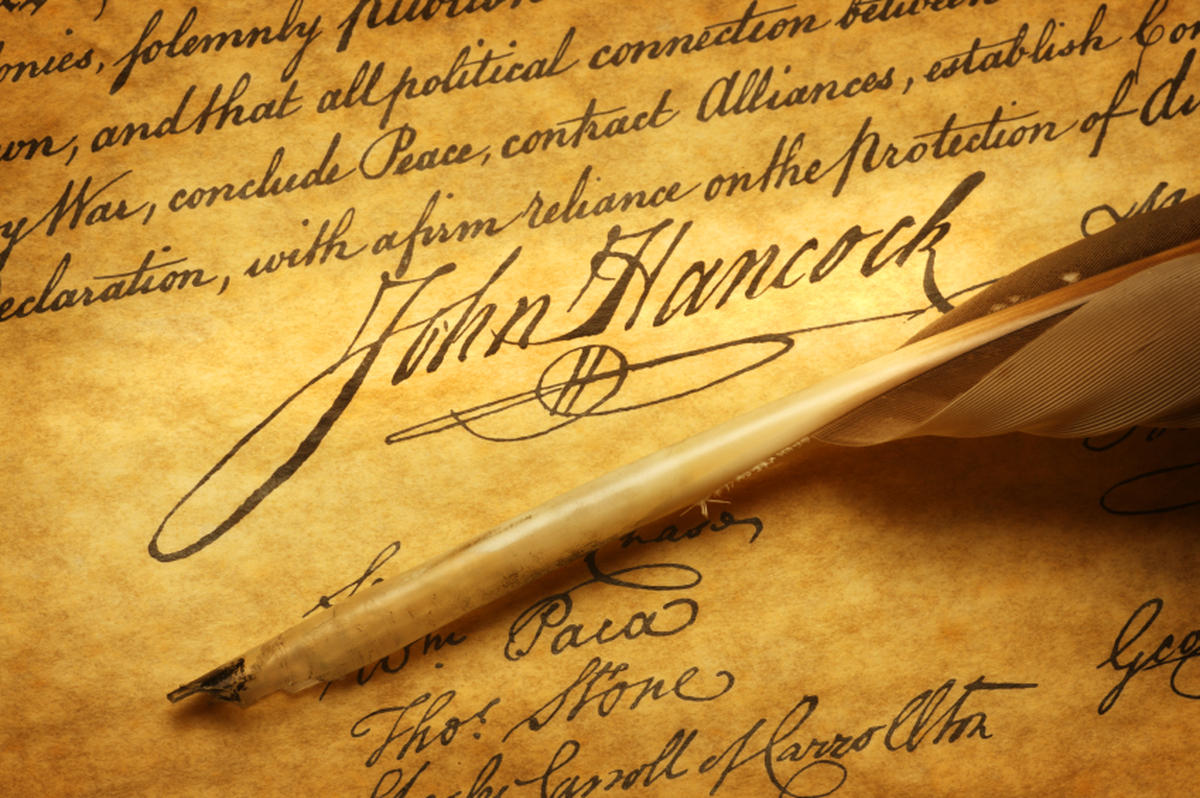 onies, solemnly publish
wn, and that all political connection between
y War, conclude Peace, contract Alliances, establish Com
eclaration, with a firm reliance on the protection of di
John Hancock
Paca
Wm
Thos. Stone
Carroll of Carrollton
Geo